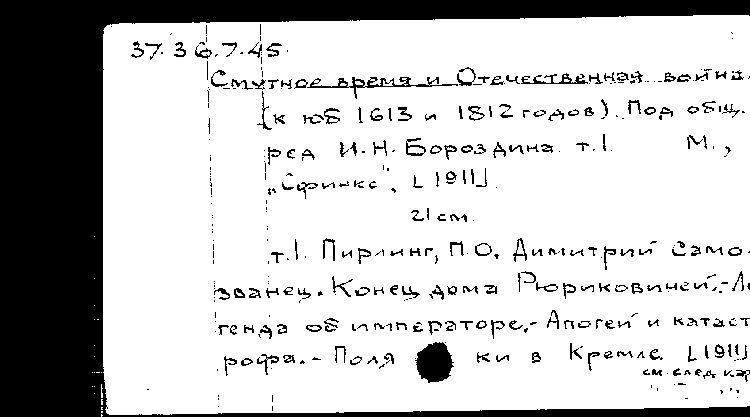 37.3 6.7.45.
Смутное время и Отечественная война.
(к юб 1613 и 1812 годов). Под общ.
ред И.Н. Бороздина т.1. М.,
„Сфинкс", [1911]
21 см.
т.1. Пирлинг, П.О. Димитрий Само-
званец. Конец дома Рюриковичей.-Ле
генда об императоре.- Апогей и катаст
рофа.- Поля ки в Кремле [1911]
см. след. кар